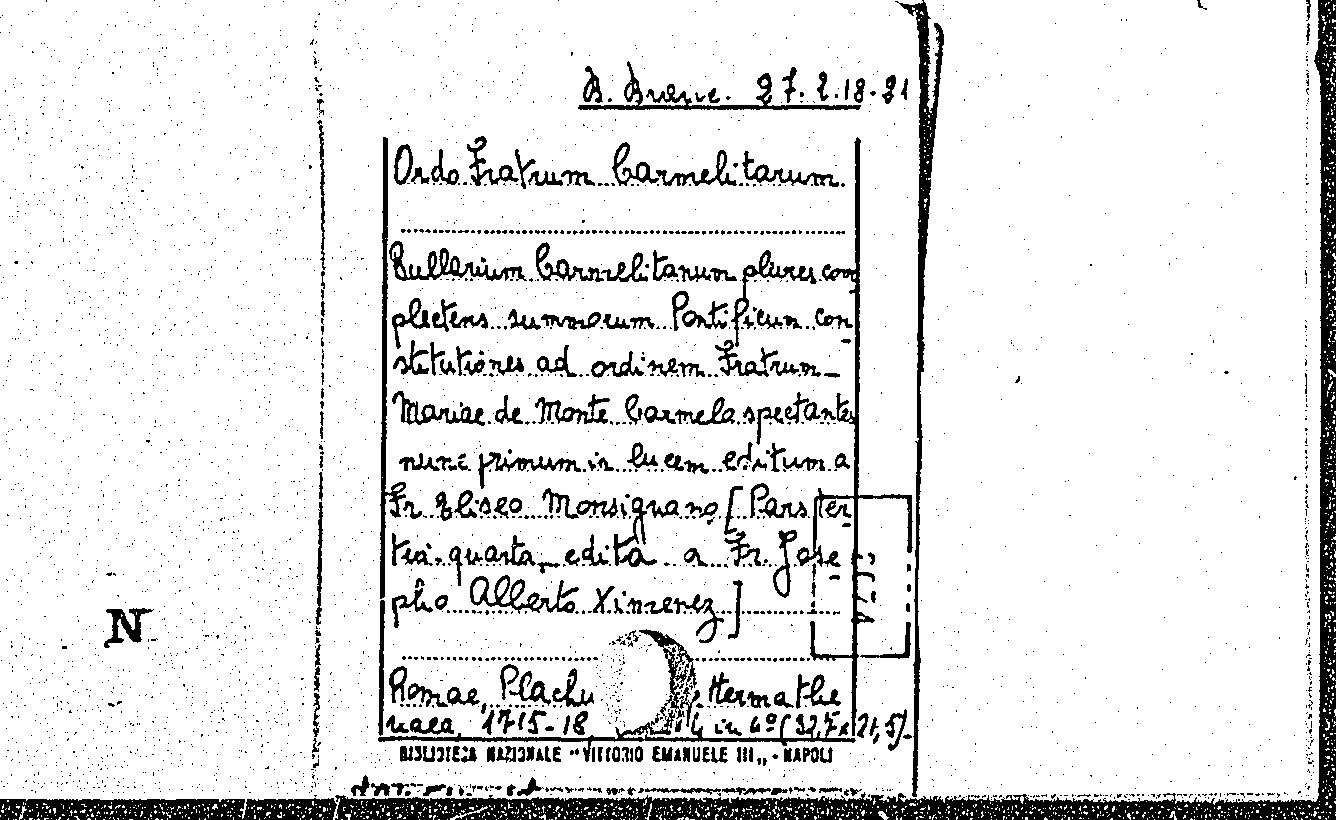 B. Branc. 27.2.18-21
Ordo Fratrum Carmelitarum
Bullarium Carmelitanum plures com
plectens summorum Pontificum con
stitutiones ad ordinem Fratrum
Mariae de Monte Carmelo spectantes
nunc primum in lucem editum a
Fr. Eliseo Monsignano [Pars ter
tia-quarta edita a Fr. Jose
pho Alberto Ximenez]
Romae, Plachi Hermathe
naea, 1715-18, 4 in 4° (32,7x21,5).
BIBLIOTECA NAZIONALE "VITTORIO EMANUELE III„ - NAPOLI
N